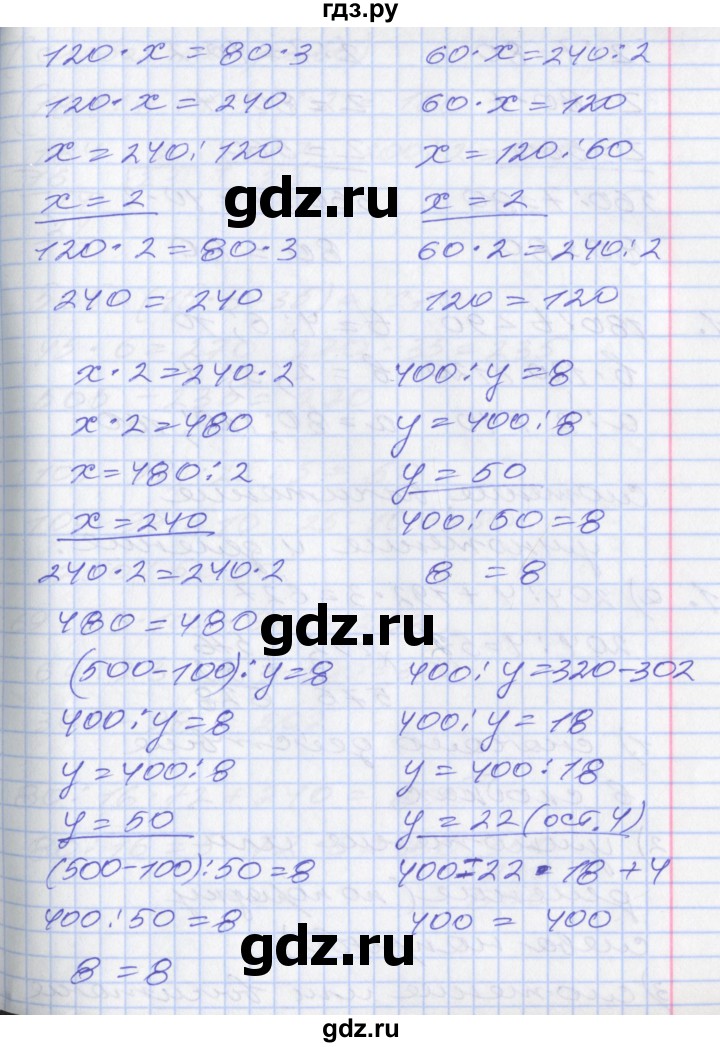 гдз.ру
120 · x = 80 · 3
120 · x = 240
x = 240 : 120
x = 2
120 · 2 = 80 · 3
240 = 240
60 · x = 240 : 2
60 · x = 120
x = 120 : 60
x = 2
60 · 2 = 240 : 2
120 = 120
gdz.ru
x · 2 = 240 · 2
x · 2 = 480
x = 480 : 2
x = 240
240 · 2 = 240 · 2
480 = 480
400 : y = 8
y = 400 : 8
y = 50
400 : 50 = 8
8 = 8
gdz.ru
(500-100) : y = 8
400 : y = 8
y = 400 : 8
y = 50
(500-100) : 50 = 8
400 : 50 = 8
8 = 8
400 : y = 320-302
400 : y = 18
y = 400 : 18
y = 22 (ост. 4)
400 = 22 · 18 + 4
400 = 400
gdz.ru
gdz.ru